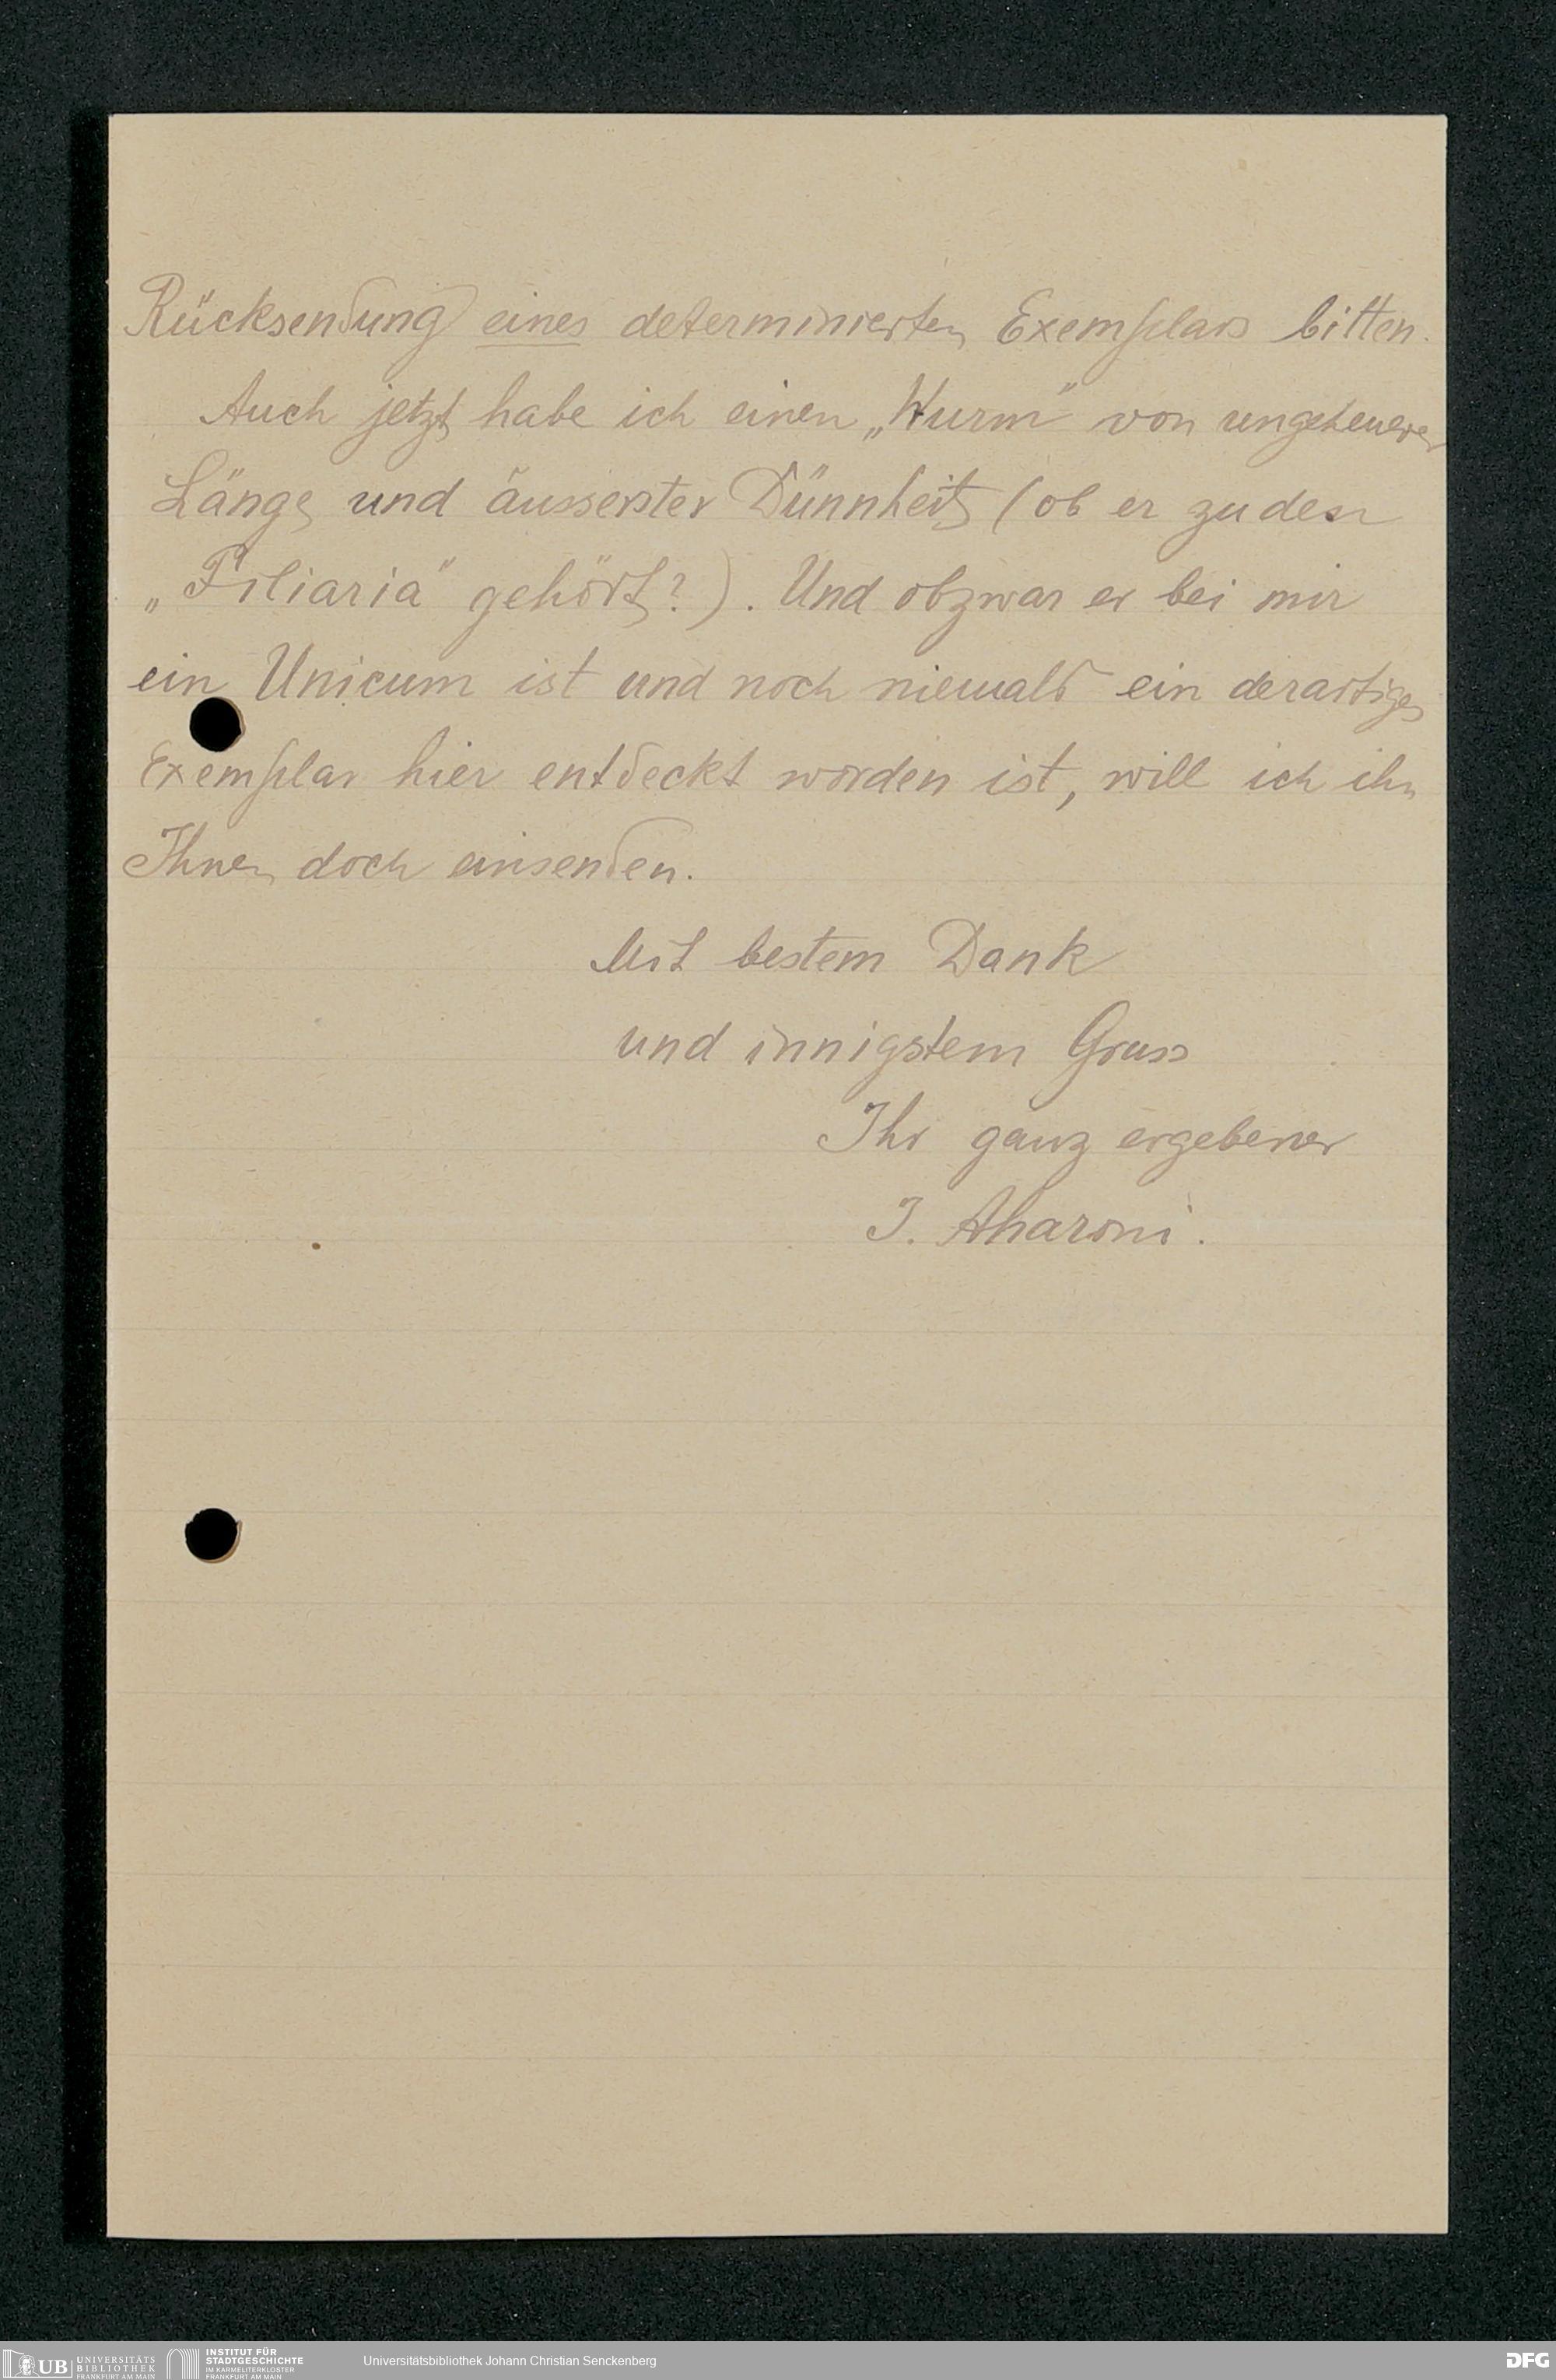 Rücksendung eines determinierten Exemplars bitten.
Auch jetzt habe ich einen „Wurm" von ungeheuerer
Länge und äusserster Dünnheit (ob er zu den
„Filiaria" gehört?). Und obzwar er bei mir
ein Unicum ist und noch niemals ein derartiges
Exemplar hier entdeckt worden ist, will ich ihn
Ihnen doch einsenden.
Mit bestem Dank
und innigstem Gruss
Ihr ganz ergebener
J. Aharoni.
UB UNIVERSITÄTS
BIBLIOTHEK
FRANKFURT AM MAIN
INSTITUT FÜR
STADTGESCHICHTE
IM KARMELITERKLOSTER
FRANKFURT AM MAIN
Universitätsbibliothek Johann Christian Senckenberg
DFG